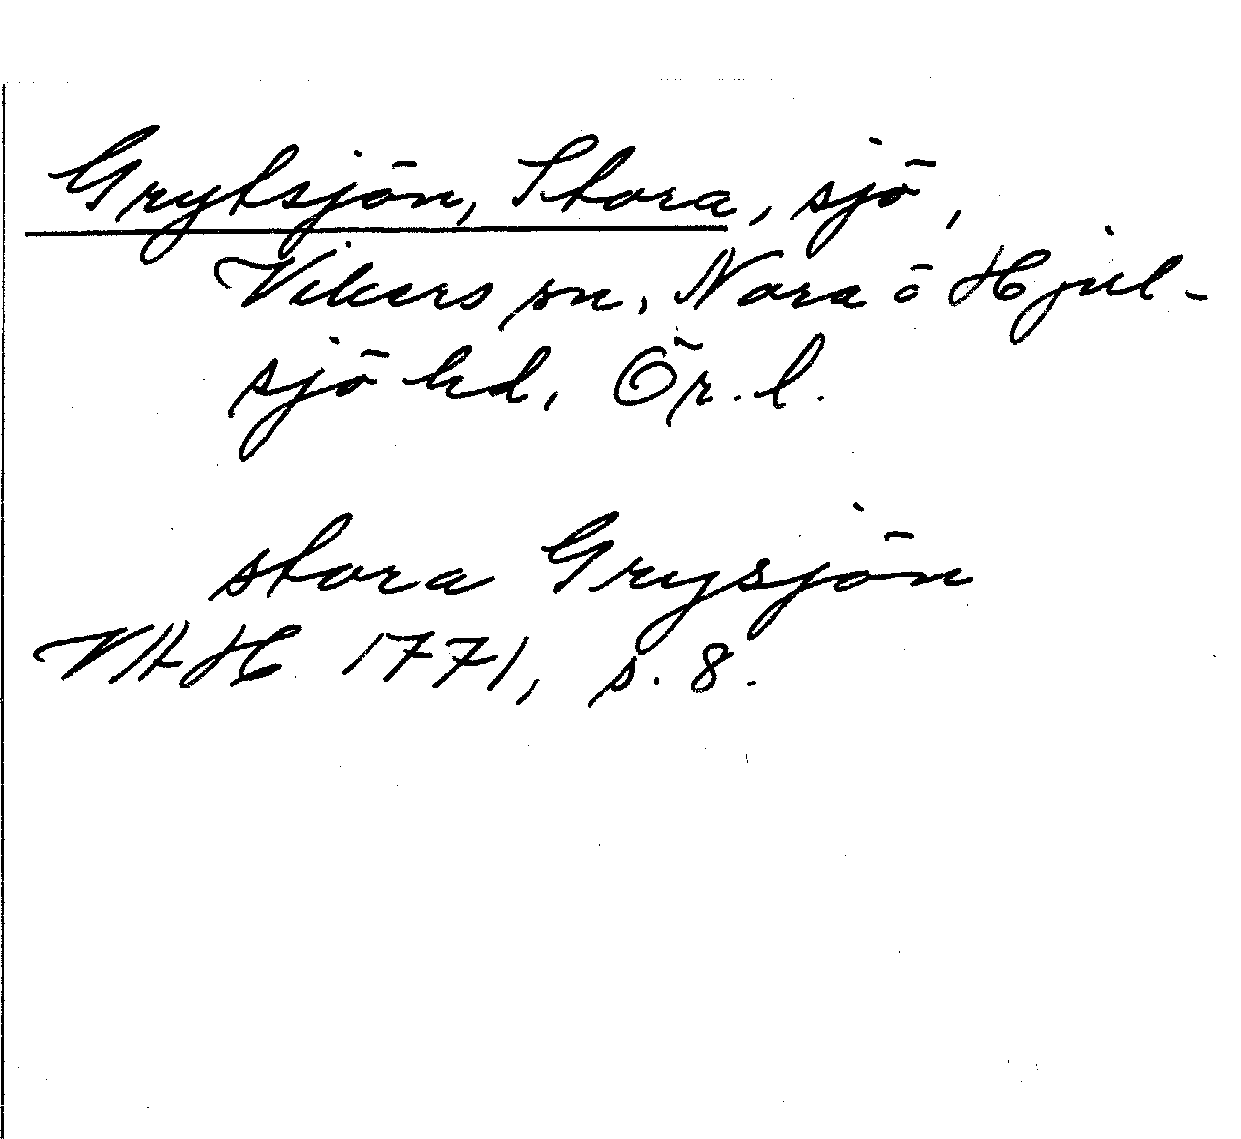 Grytsjön, Stora, sjö,
Vikers sn, Nora o Hjul-
sjö hd, Ör. l.
stora Grysjön
VAH 1771, s. 8.